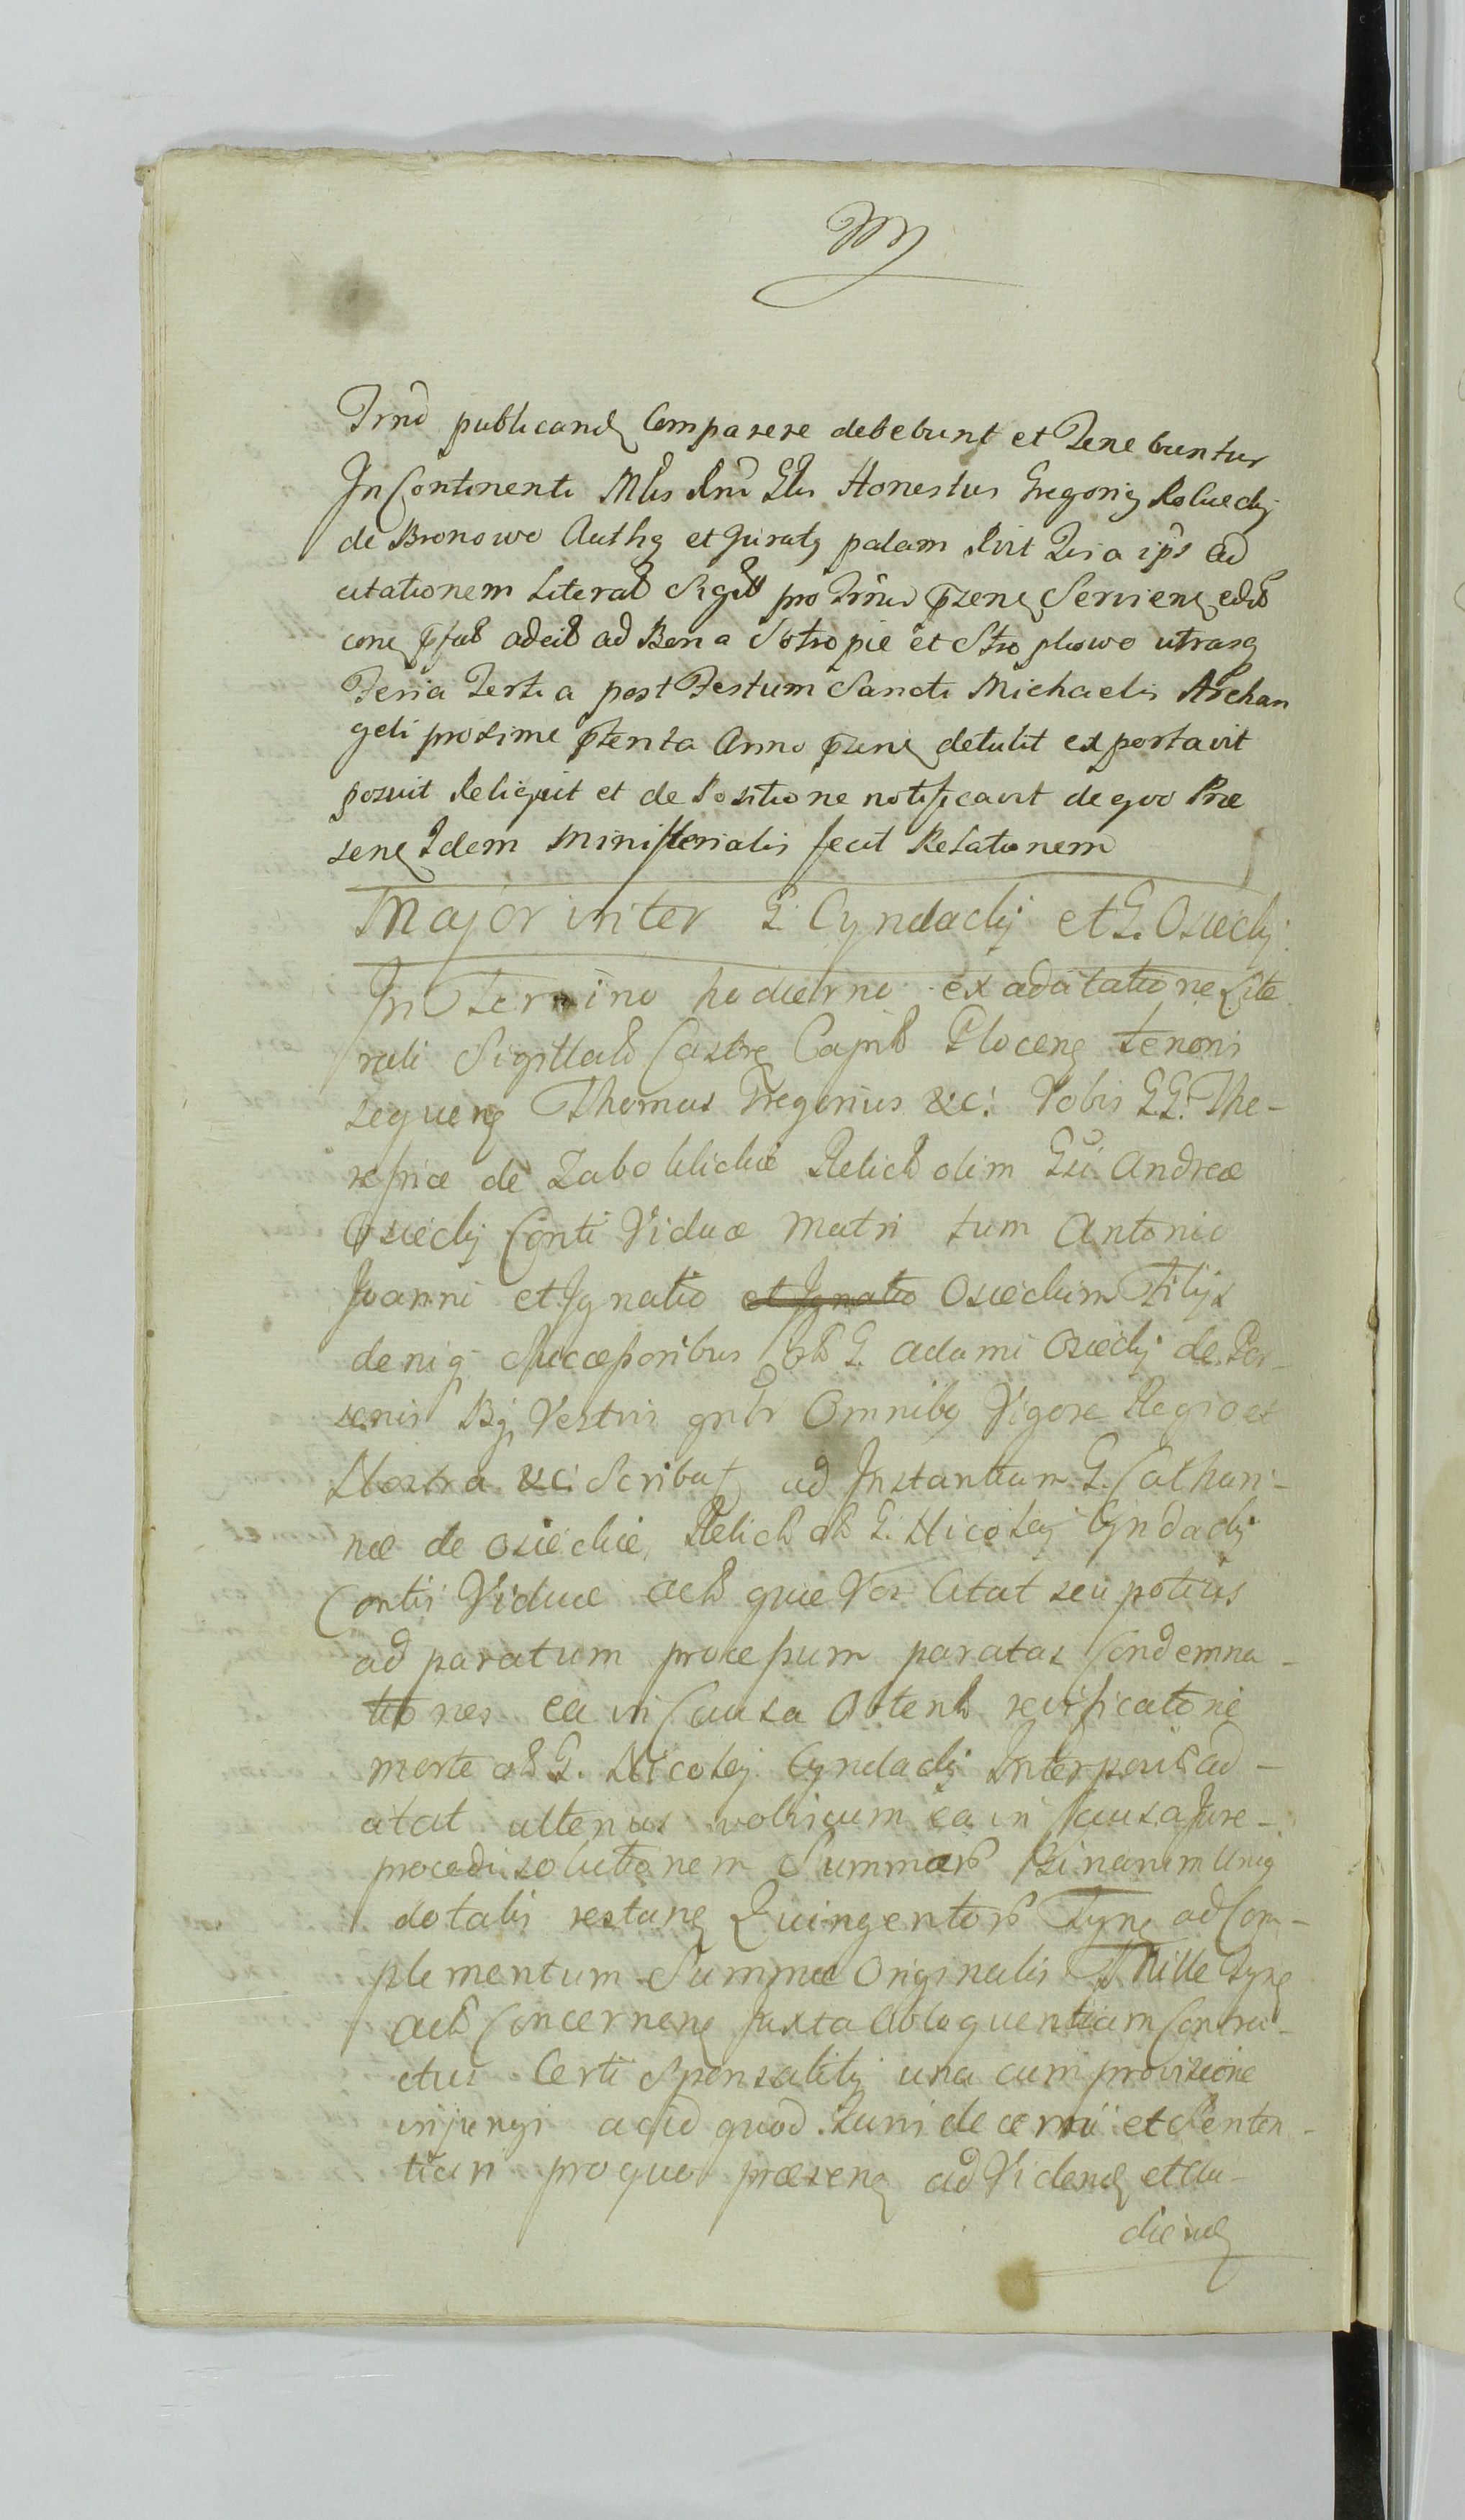 Trnô publicand Comparere debebunt et Tenebuntur
In Continenti Mlis Rni Glis Honestus Gregorig Roluchij
de Bronowo Authg et Juratg palam Rvit Zis a ips ad
citationem Literal Sigill pro Trno przeng Serviens edit
ad Bona Sotropie et Stropkowo utrasq
Feria Tertia post Festum Sancti Michaelis Archan
geli proxime Anno detulit exportavit
posuit Reliquit et de Positione notificavit de quo Prae
sens Idem Ministerialis fecit Relationem
Major inter G. Cyndachij et G. Osiechij
In Termino hodierno ex adcitatione Lite
rali Sigillali Castre Capit Plocens tenoris
sequens Thomas Gregorius &c: Vobis GG. The-
resiae de Zaboklickie Relict olim Gsi. Andreae
Osiechij Conti Viduae Matri tum Antonio
Joanni et Ignatio et Ignatio Osieckim Filijs
deniq Successoribus olt G. Adami Osiechij de Per-
senis Bj Vestris gnlr Omnibg Vigore Regio et
Nostra &c: Scribat ad Instantiam G. Cathari-
nae de Osieckie Relict olt G. Nicolaj Cyndachij
Contis Viduae act quae Vos Citat seu potius
ad paratum processum paratas Condemna-
tiones ea in Causa Obtent revificatione
morte olt G. Nicolaj Cyndachij Interposit ad-
citat attenus vobiscum ea in Causa Jure-
procedi solutionem Summae
dotalis restang Quingentor Tyng ad Com-
plementum Summae Originalis Mille Tyng
act Concerneng Juxta Obloquentiam Contra-
ctus Certi Sponsalitij una cum provisione
injungi acid quod Luni decerni et Senten-
tiari pro quo praeseng ad Vidend et Au-
diend